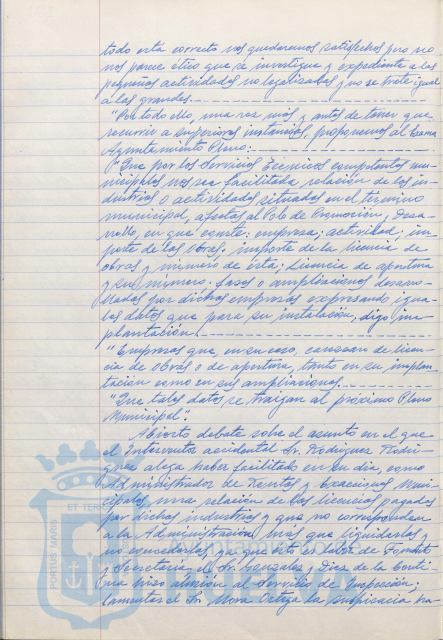 todo está correcto nos quedaremos satisfechos pero no
nos parece ético que se investigue y expediente a las
pequeñas actividades no legalizadas y no se trate igual
a las grandes.
"Por todo ello, una vez más y antes de tener que
recurrir a superiores instancias, proponemos al Excmo
Ayuntamiento Pleno:
"Que por los Servicios Técnicos competentes mu-
nicipales nos sea facilitada relación de las in-
dustrias o actividades situadas en el término
municipal, afectas al Polo de Promoción y Desa-
rrollo, en que conste: empresa; actividad; im-
porte de las obras; importe de la licencia de
obras y número de ésta; Licencia de apertura
y su número; fases o ampliaciones desarro-
lladas por dichas empresas expresando igua-
les datos que para su instalación, digo im-
plantación.
"Empresas que, en su caso, carezcan de licen-
cia de obras o de apertura, tanto en su implan-
tación como en sus ampliaciones.
"Que tales datos se traigan al próximo Pleno
Municipal".
Abierto debate sobre el asunto en el que
el Interventor accidental Sr. Rodríguez Rodrí-
guez alega haber facilitado en su día, como
Administrador de Rentas y Exacciones Muni-
cipales una relación de las licencias pagadas
por dichas industrias y que no corresponden
a la Administración más que liquidarlas y
no conocerlas, ya que esto es labor de Fomento
y Secretaría; el Sr. González y Díez de la Corti-
na hizo alusión al Servicio de Inspección;
lamentar el Sr. Mora Ortega la suspicacia ha-
PORTUS MARIS
ET TER